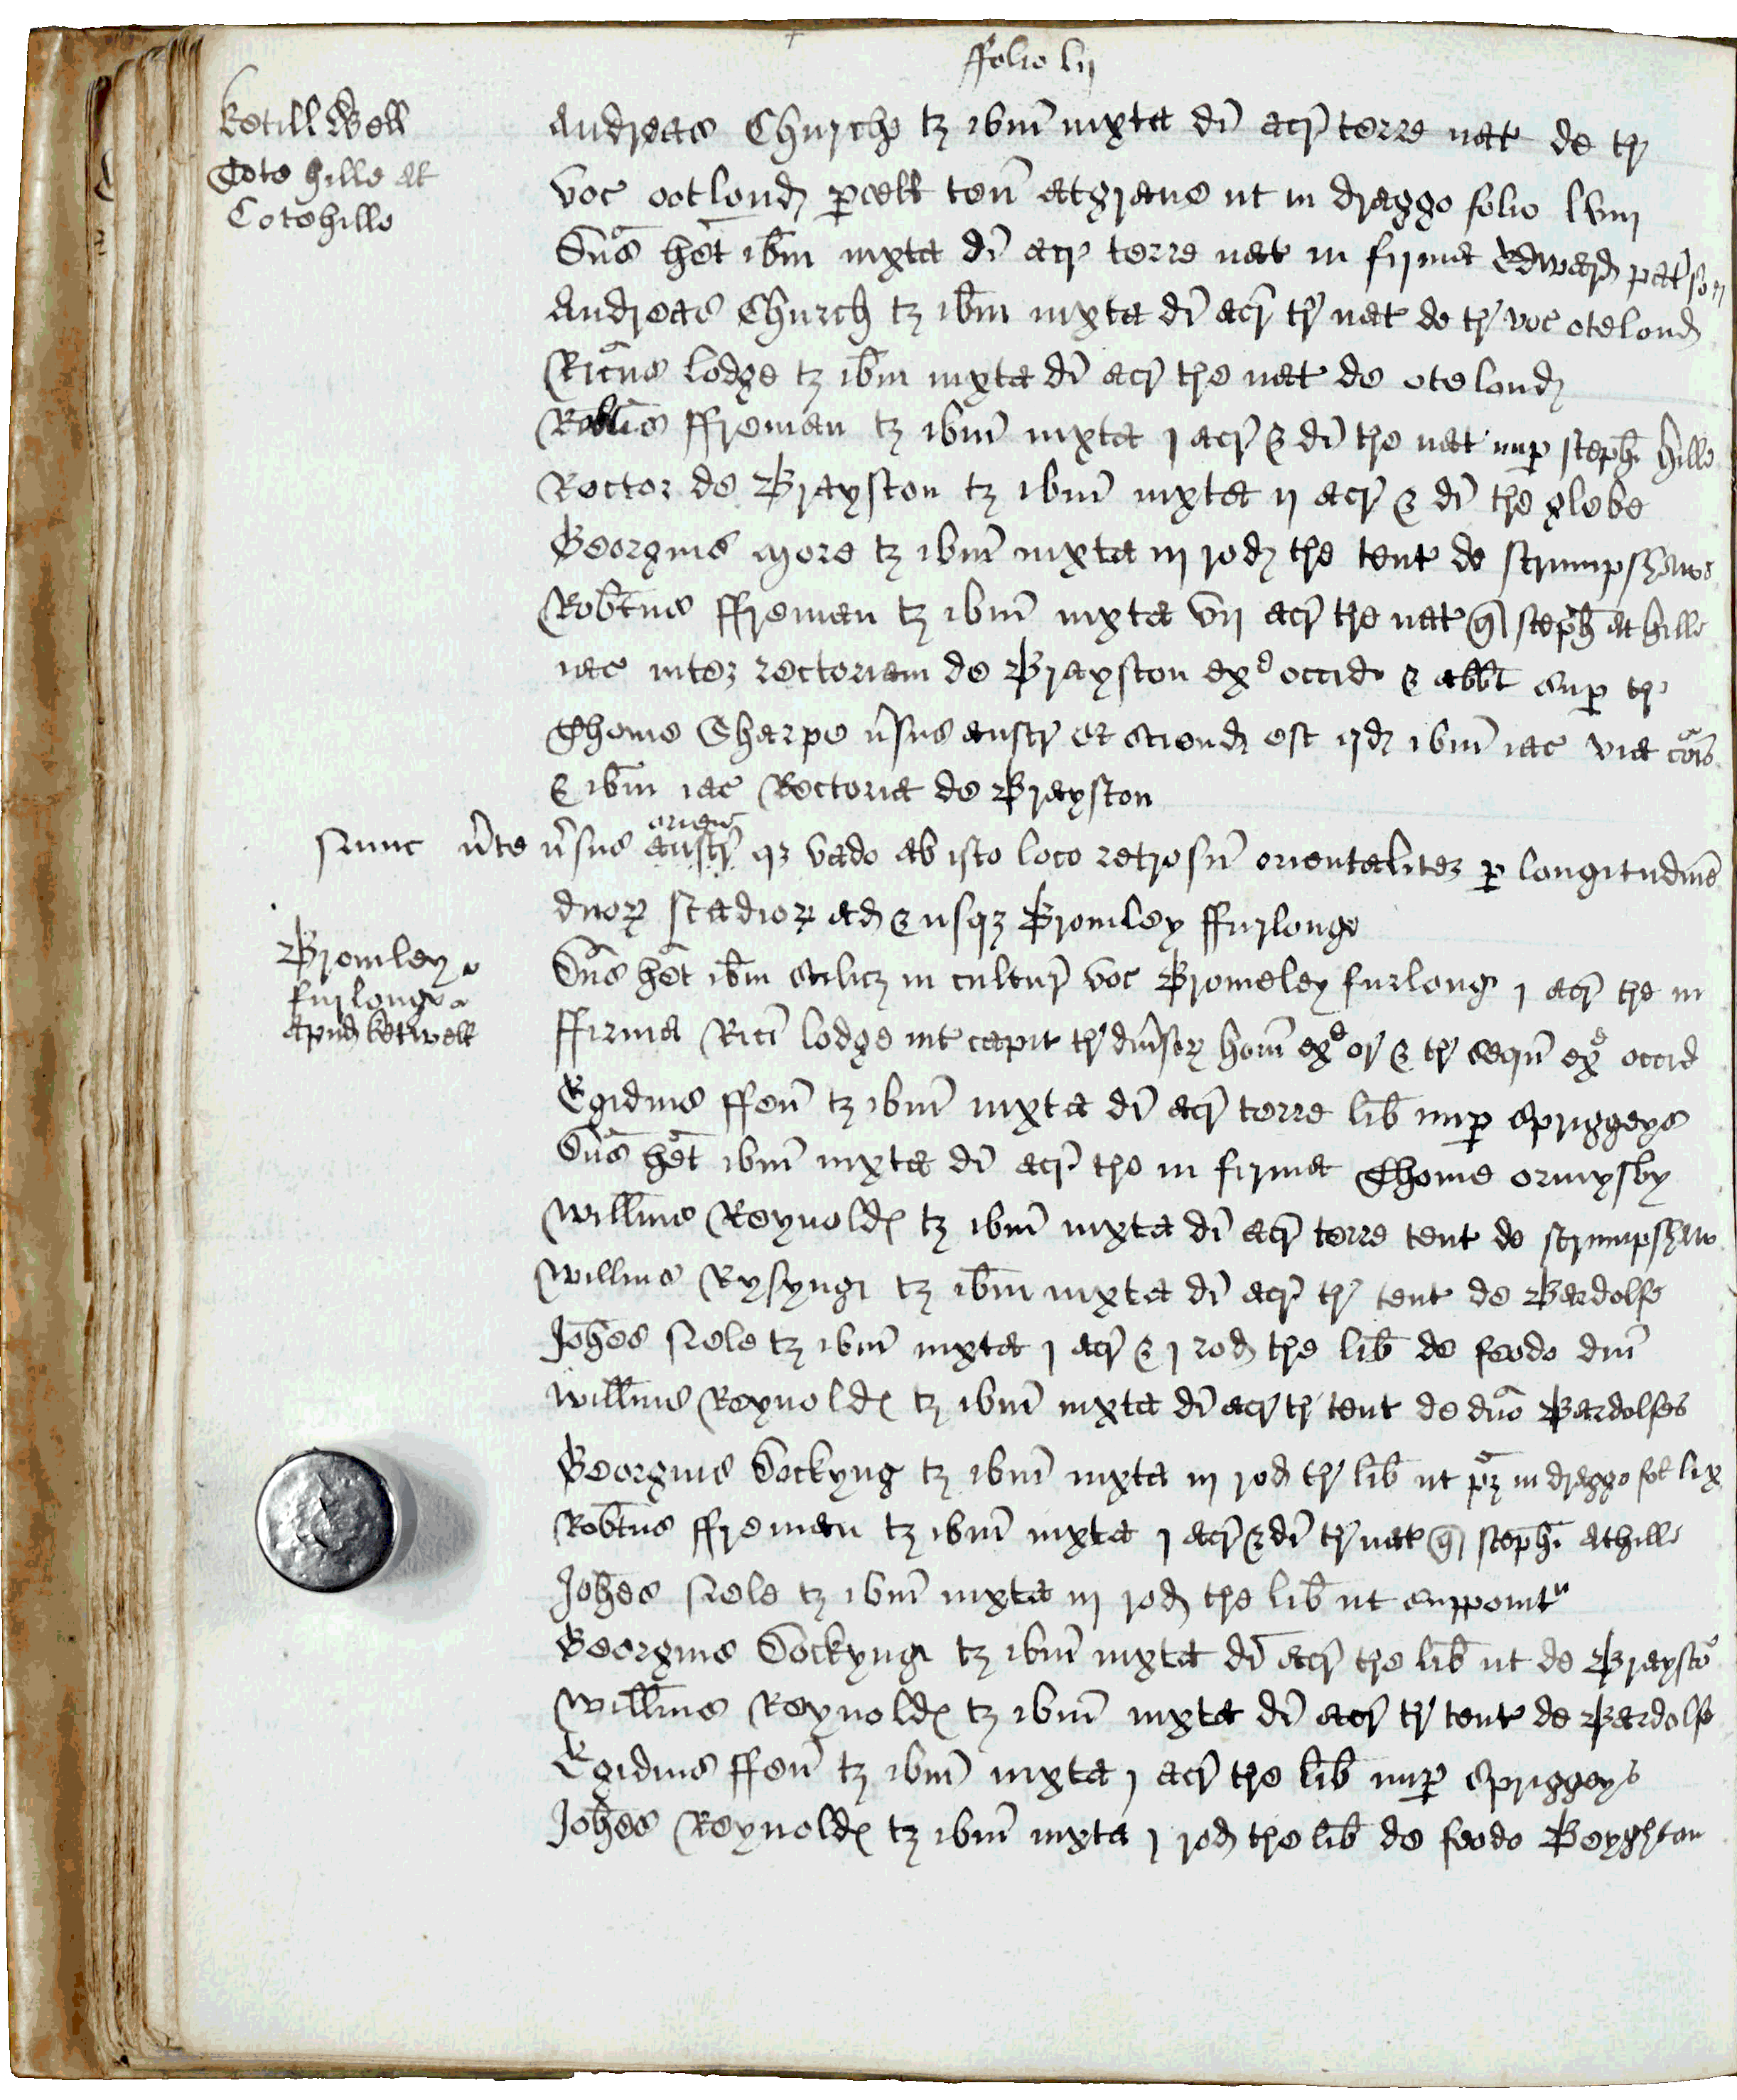 ffolio lij
Ketill Well
Tote hille at
Cotehille
Andreas Churche tȝ ibm̄ iuxta di acr̄ terre nat de tr̄
voc ootlond p̱cell ten̄ Atgraue ut in draggo folio lviij
Dn̄s het ibm̄ iuxta di acr̄ terre nat in firma Edward patson
Andreas Church tȝ ibm̄ iuxta di acr̄ tr̄ nat de tr̄ voc otelond
Ric̄us lodge tȝ ibm̄ iuxta di acr̄ tre nat de otelond
Robtus ffreman tȝ ibm̄ iuxta j acr̄ & di tre nat nup̱ steph̄i hille
Rector de Brayston tȝ ibm̄ iuxta ij acr̄ & di tre glebe
Georgius More tȝ ibm̄ iuxta iij rod tre tent de Strumpshawe
Robtus ffreman tȝ ibm̄ iuxta vij acr̄ tre nat q̄ Steph̄ Athille
iac inter rectoriam de Brayston exᵈ occid & abbt sup̱ tr̄
Thome Sharpe v̄sus austr̄ et sciend est qd ibm̄ iac via cōis
& ibm̄ iac Rectoria de Brayston
Nunc v̄te v̄sus austr̄ oriens qȝ vado ab isto loco retrosū orientaliter p̱ longitudinē
duoꝝ stadioꝝ ad & usqȝ Bromley ffurlonge
Bromley
furlonge
apud ketwell
Dn̄s het ibm̄ scilicȝ in cultur̄ voc Bromeley furlong j acr̄ tre in
ffirma Rici lodge int capit tr̄ diūsoꝝ hom̄ exᵈ or̄ & tr̄ sequn̄ exᵈ occid
Egidius ffenn tȝ ibm̄ iuxta di acr̄ terre lib̄ nup̱ Spriggeys
Dn̄s het ibm̄ iuxta di acr̄ tre in firma Thome ormysby
Willm̄us Reynolds tȝ ibm̄ iuxta di acr̄ terre tent de strumpshaw
Willm̄us Rysyng tȝ ibm̄ iuxta di acr̄ tr̄ tent de Bardolfe
Joh̄es Nele tȝ ibm̄ iuxta j acr̄ & j rod tre lib̄ de feodo dm̄
Willm̄us Reynolds tȝ ibm̄ iuxta di acr̄ tr̄ tent de dn̄o Bardolfes
Georgius Dockyng tȝ ibm̄ iuxta iij rod tr̄ lib̄ ut pȝ in draggo fol lix
Robtus ffreman tȝ ibm̄ iuxta j acr̄ & di tr̄ nat q̄ steph̄i Athille
Joh̄es Nele tȝ ibm̄ iuxta iij rod tre lib̄ ut supponitᵘ
Georgius Dockyng tȝ ibm̄ iuxta di acr̄ tre lib̄ ut de Braystō
Willm̄us Reynolds tȝ ibm̄ iuxta di acr̄ tr̄ tent de Bardolfe
Egidius ffenn tȝ ibm̄ iuxta j acr̄ tre lib̄ nup̱ Spriggeys
Joh̄es Reynolds tȝ ibm̄ iuxta j rod tre lib̄ de feodo Beyghton